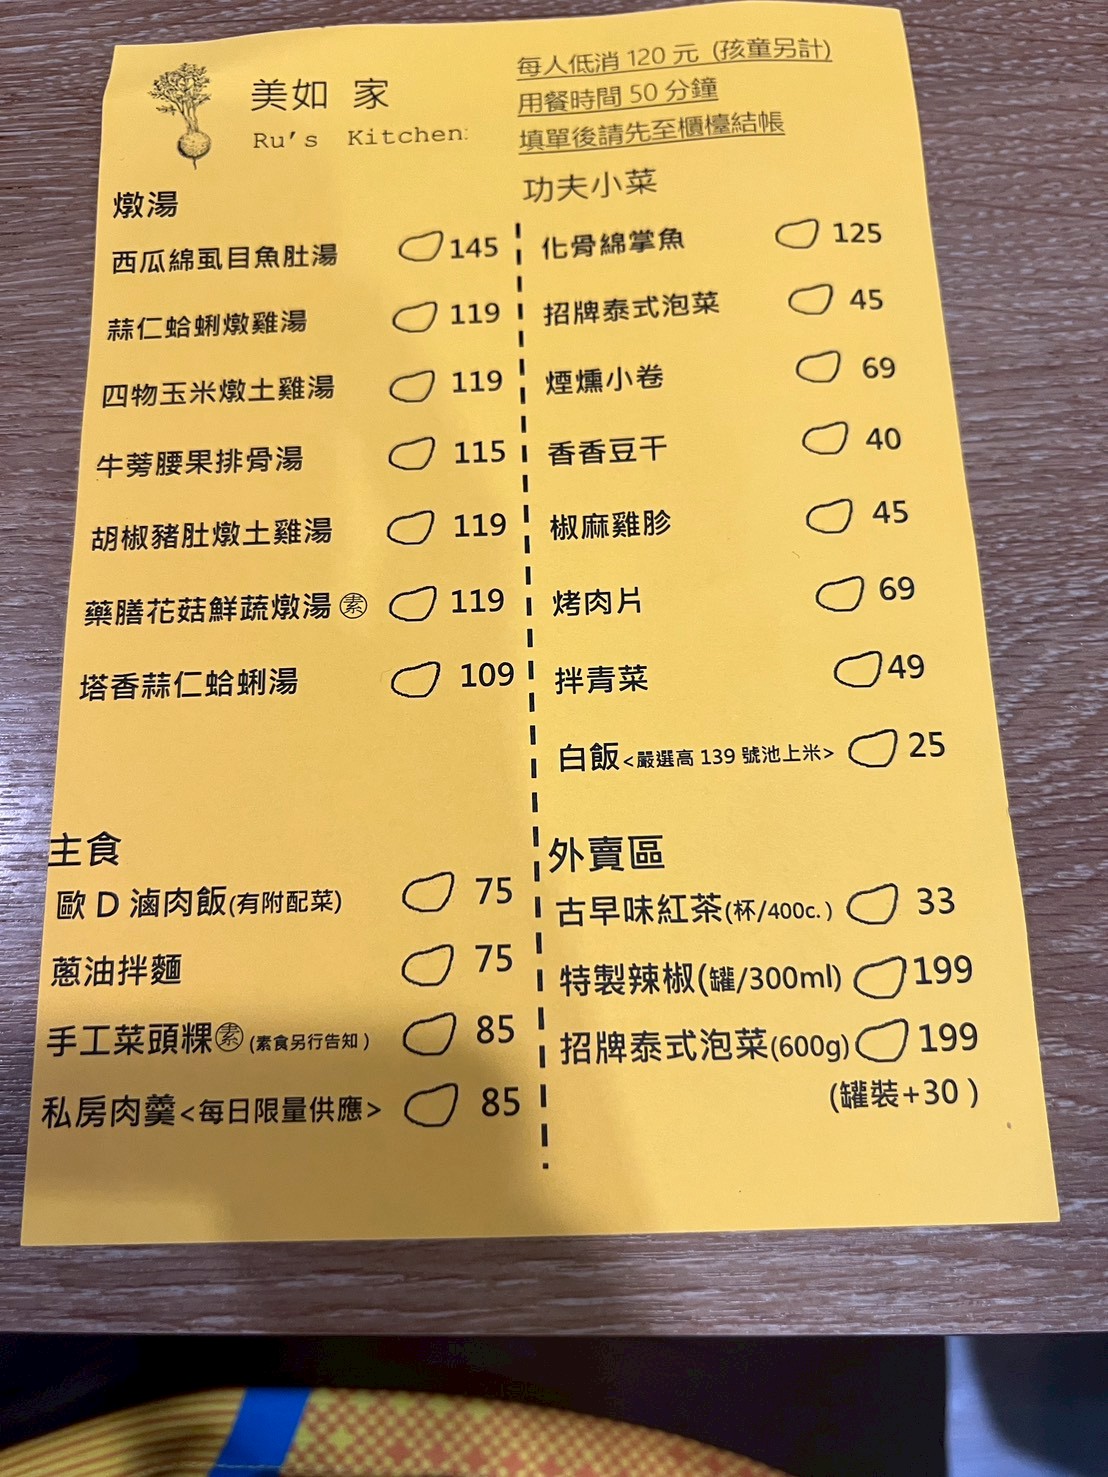 美如 家
Ru's Kitchen
每人低消 120 元 (孩童另計)
用餐時間 50 分鐘
填單後請先至櫃檯結帳
燉湯
西瓜綿虱目魚肚湯 145
蒜仁蛤蜊燉雞湯 119
四物玉米燉土雞湯 119
牛蒡腰果排骨湯 115
胡椒豬肚燉土雞湯 119
藥膳花菇鮮蔬燉湯 素 119
塔香蒜仁蛤蜊湯 109
主食
歐 D 滷肉飯(有附配菜) 75
蔥油拌麵 75
手工菜頭粿 素 (素食另行告知) 85
私房肉羹<每日限量供應> 85
功夫小菜
化骨綿掌魚 125
招牌泰式泡菜 45
煙燻小卷 69
香香豆干 40
椒麻雞胗 45
烤肉片 69
拌青菜 49
白飯<嚴選高 139 號池上米> 25
外賣區
古早味紅茶(杯/400c.) 33
特製辣椒(罐/300ml) 199
招牌泰式泡菜(600g) 199
(罐裝+30)